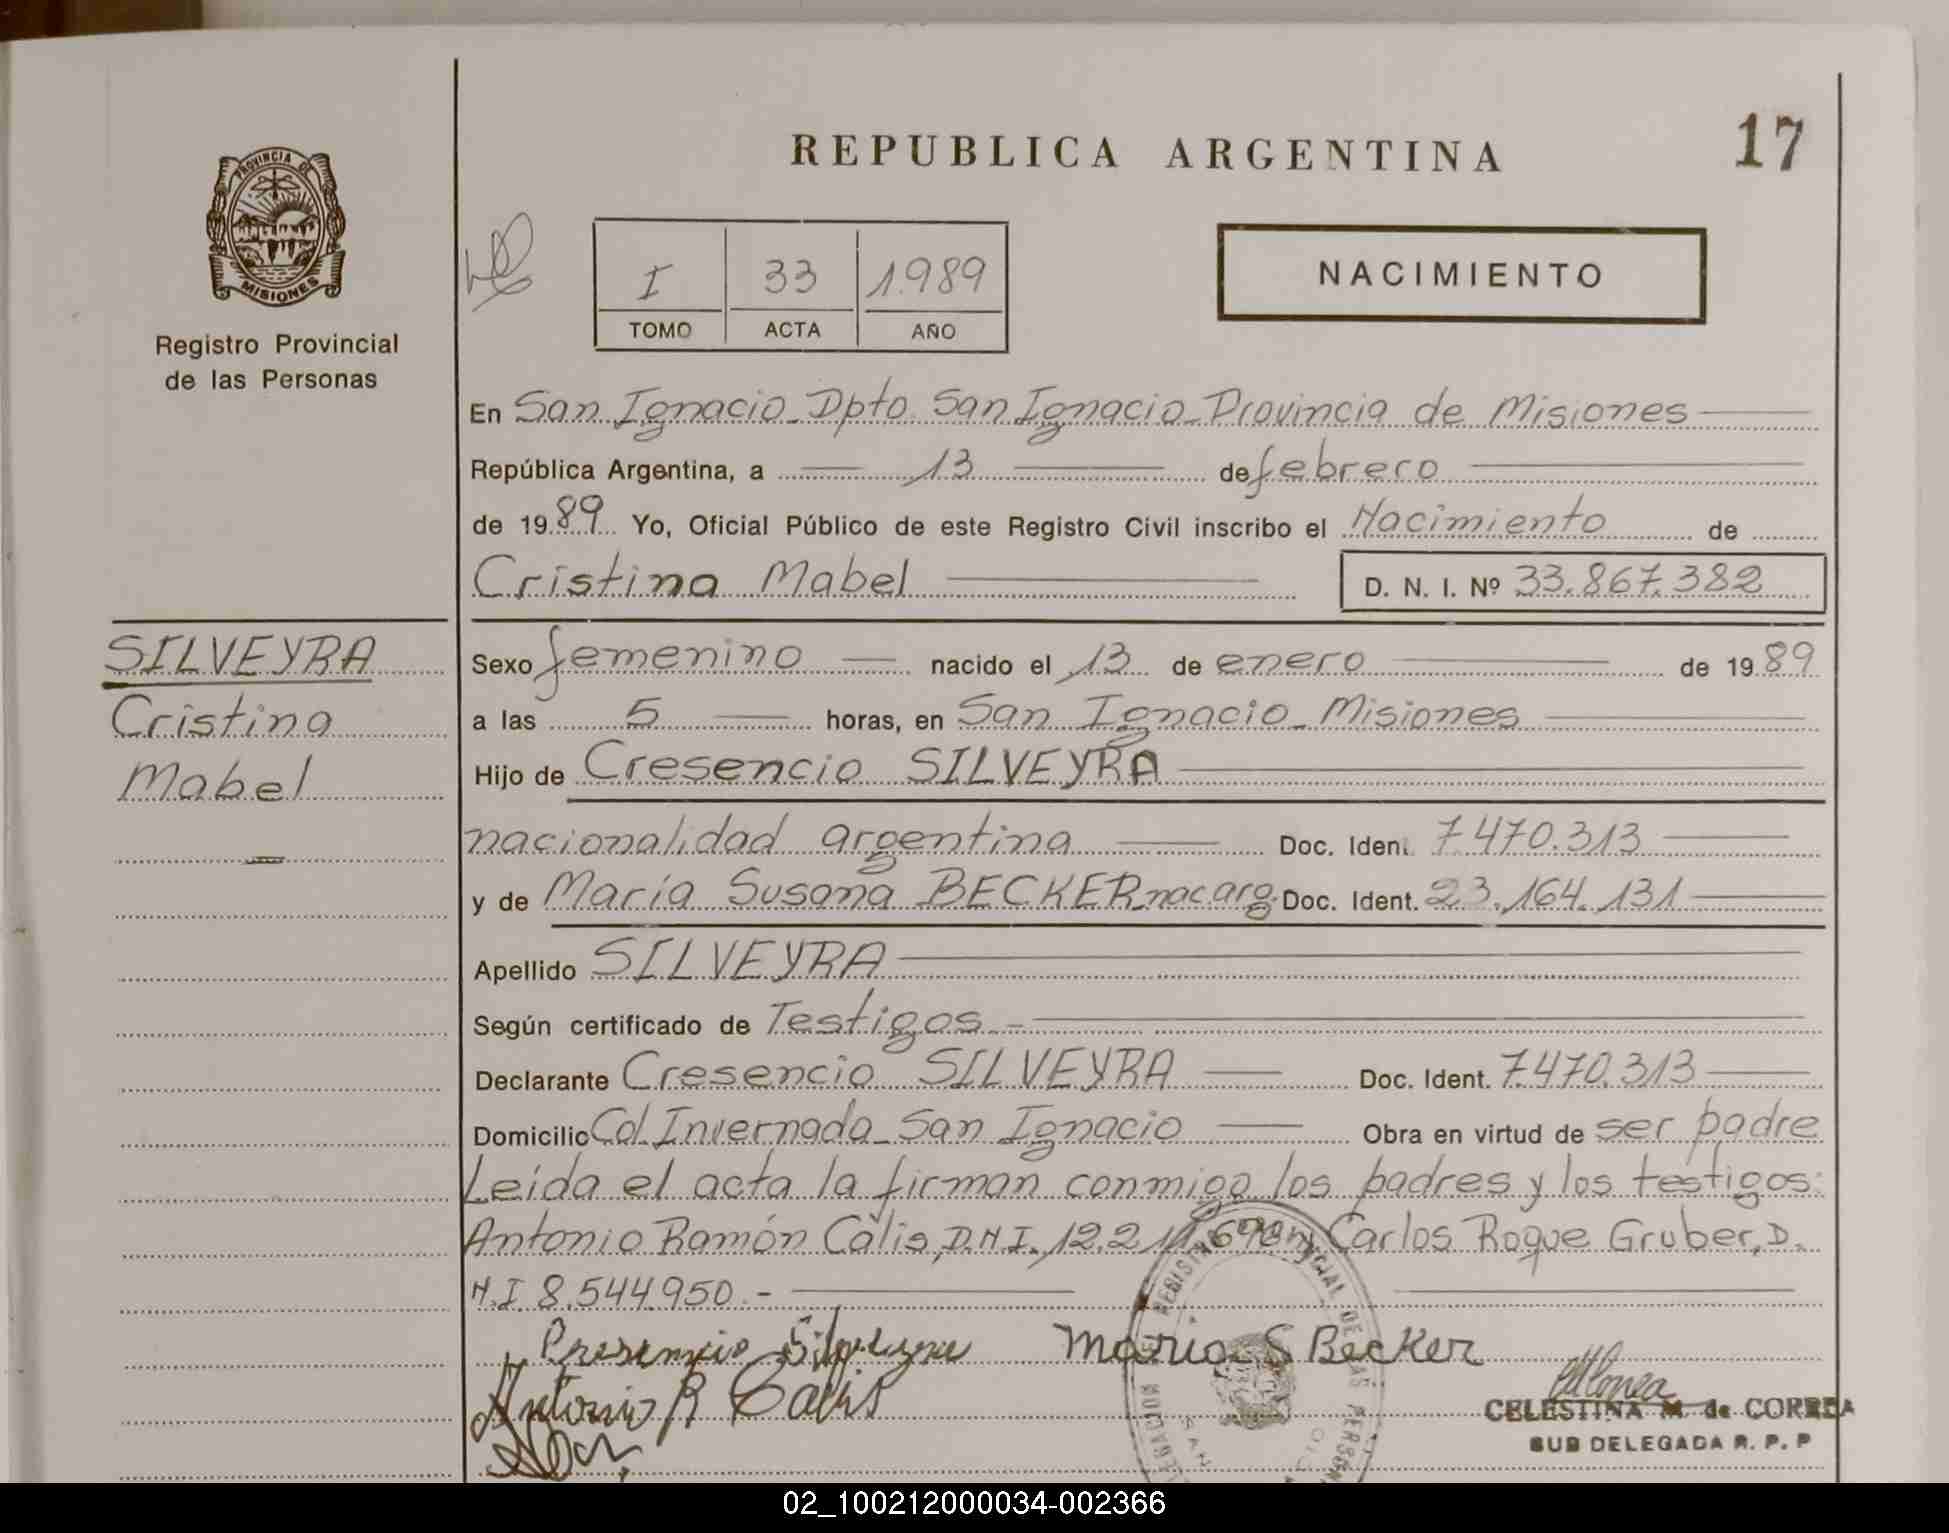 REPUBLICA ARGENTINA
17
PROVINCIA DE
MISIONES
Registro Provincial
de las Personas
I 33 1.989
TOMO ACTA AÑO
NACIMIENTO
En San Ignacio_Dpto. San Ignacio_Provincia de Misiones
República Argentina, a 13 de febrero
de 1989 Yo, Oficial Público de este Registro Civil inscribo el Nacimiento de
Cristina Mabel D. N. I. Nº 33.867.382
SILVEYRA
Cristina
Mabel
Sexo femenino nacido el 13 de enero de 1989
a las 5 horas, en San Ignacio_Misiones
Hijo de Cresencio SILVEYRA
nacionalidad argentina Doc. Ident. 7.470.313
y de María Susana BECKER_nac.arg. Doc. Ident. 23.164.131
Apellido SILVEYRA
Según certificado de Testigos.-
Declarante Cresencio SILVEYRA Doc. Ident. 7.470.313
Domicilio Col. Invernada_San Ignacio Obra en virtud de ser padre
Leída el acta la firman conmigo los padres y los testigos:
Antonio Ramón Cális, D.N.I. 12.211.698 y Carlos Roque Gruber, D.
N.I. 8.544.950.-
Cresencio Silveyra Maria S Becker
Antonio R Calis
CELESTINA M de CORREA
SUB DELEGADA R. P. P
02_100212000034-002366